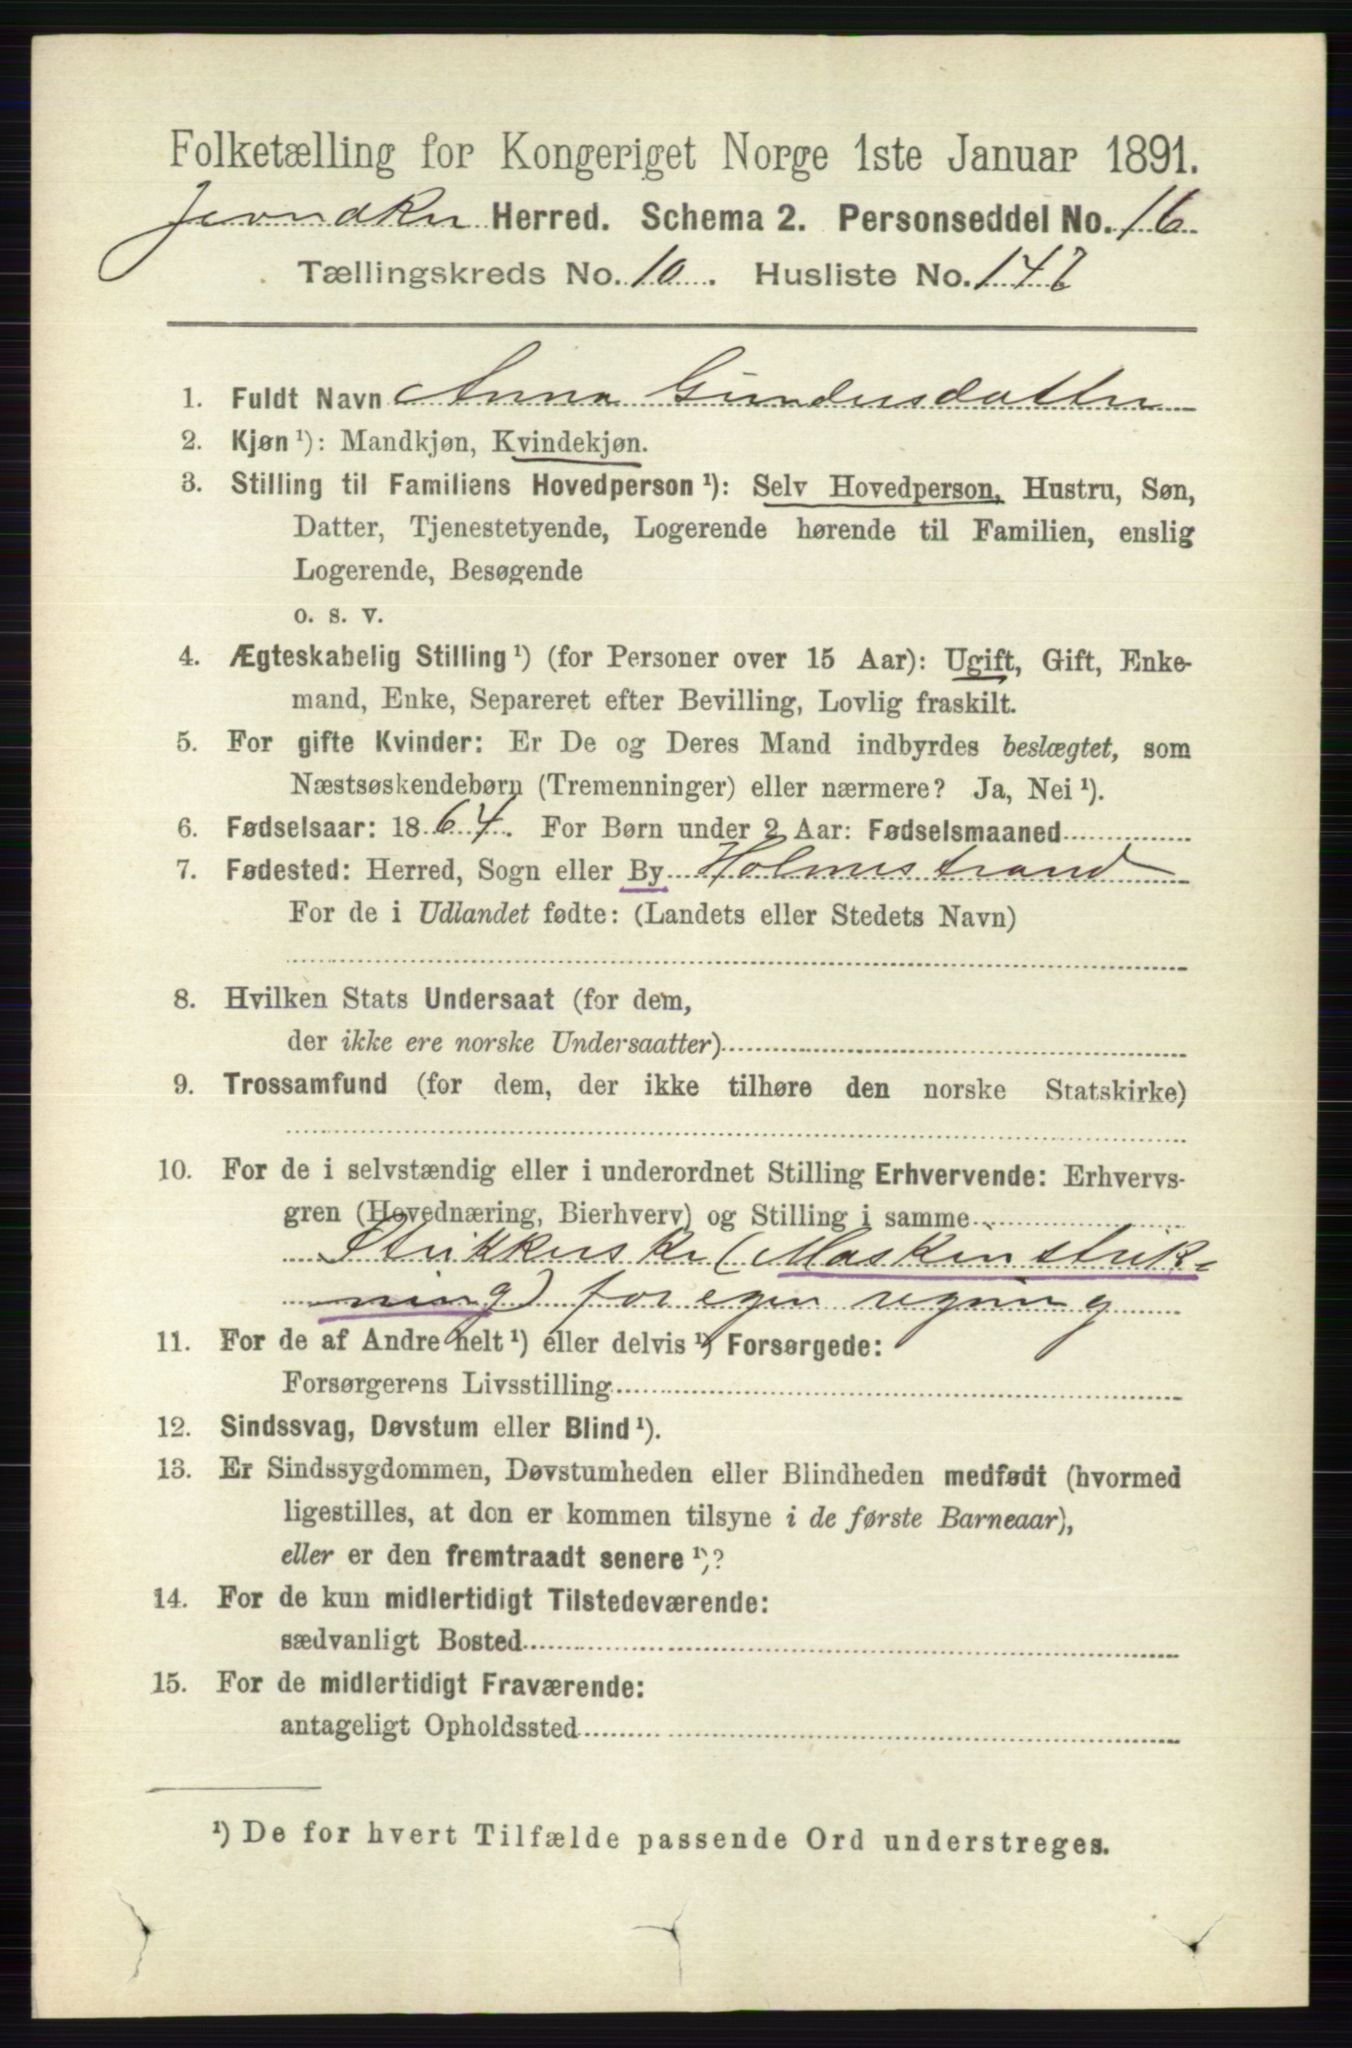 Folketælling for Kongeriget Norge 1ste Januar 1891.
Jevnaker Herred. Schema 2. Personseddel No. 16
Tællingskreds No. 10. Husliste No. 147
1. Fuldt Navn Anna Gundersdatter
2. Kjøn ¹): Mandkjøn, Kvindekjøn.
3. Stilling til Familiens Hovedperson ¹): Selv Hovedperson, Hustru, Søn,
Datter, Tjenestetyende, Logerende hørende til Familien, enslig
Logerende, Besøgende
o. s. v.
4. Ægteskabelig Stilling ¹) (for Personer over 15 Aar): Ugift, Gift, Enke-
mand, Enke, Separeret efter Bevilling, Lovlig fraskilt.
5. For gifte Kvinder: Er De og Deres Mand indbyrdes beslægtet, som
Næstsøskendebørn (Tremenninger) eller nærmere? Ja, Nei ¹).
6. Fødselsaar: 1864. For Børn under 2 Aar: Fødselsmaaned
7. Fødested: Herred, Sogn eller By Holmestrand
For de i Udlandet fødte: (Landets eller Stedets Navn)
8. Hvilken Stats Undersaat (for dem,
der ikke ere norske Undersaatter)
9. Trossamfund (for dem, der ikke tilhøre den norske Statskirke)
10. For de i selvstændig eller i underordnet Stilling Erhvervende: Erhvervs-
gren (Hovednæring, Bierhverv) og Stilling i samme
Strikkerske (Maskinstrik-
ning) for egen regning
11. For de af Andre helt ¹) eller delvis ¹) Forsørgede:
Forsørgerens Livsstilling
12. Sindssvag, Døvstum eller Blind ¹).
13. Er Sindssygdommen, Døvstumheden eller Blindheden medfødt (hvormed
ligestilles, at den er kommen tilsyne i de første Barneaar),
eller er den fremtraadt senere ¹)?
14. For de kun midlertidigt Tilstedeværende:
sædvanligt Bosted
15. For de midlertidigt Fraværende:
antageligt Opholdssted
¹) De for hvert Tilfælde passende Ord understreges.